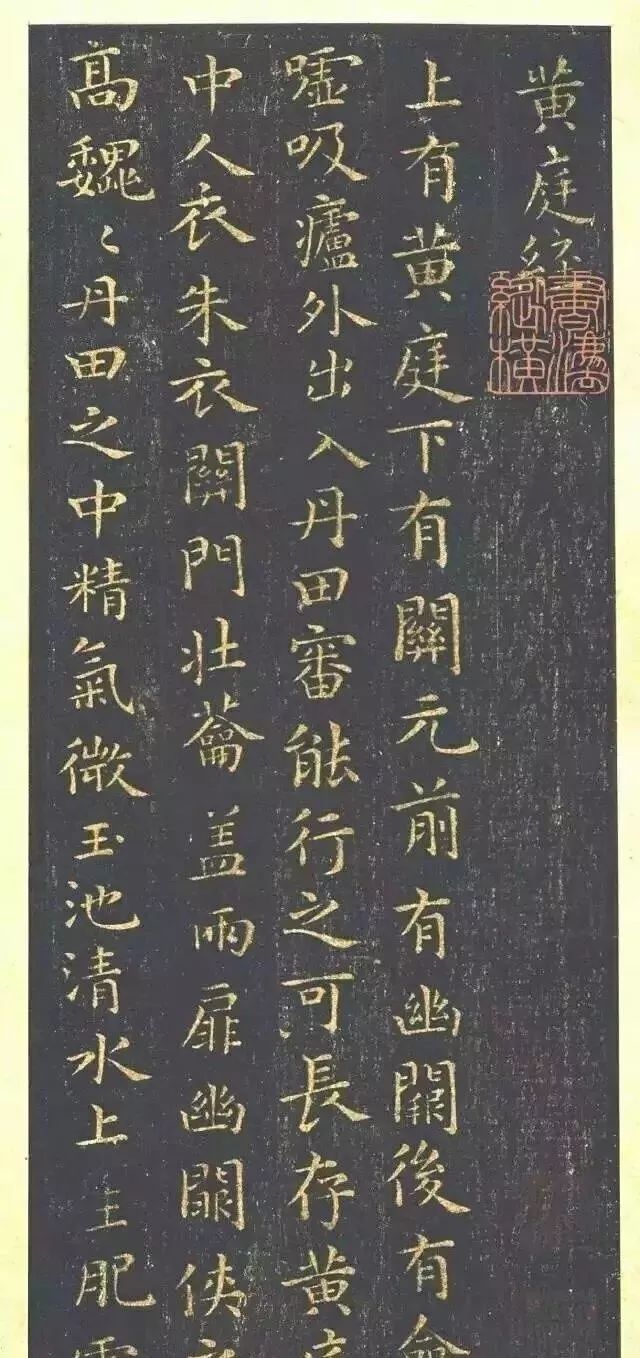 黄庭經
上有黄庭下有關元前有幽闕後有命
噓吸廬外出入丹田審能行之可長存黄庭
中人衣朱衣關門壯蘥盖兩扉幽闕俠
高魏〻丹田之中精氣微玉池清水上主肥靈